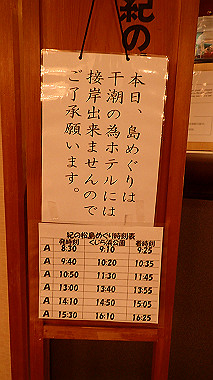 紀の
本日、島めぐりは
干潮の為ホテルには
接岸出来ませんので
ご了承願います。
紀の松島めぐり時刻表
発時刻 くじら浜公園 着時刻
A 8:30 9:10 9:25
9:40 10:20 10:35
A 10:50 11:30 11:45
A 13:00 13:40 13:55
A 14:10 14:50 15:05
A 15:30 16:10 16:25